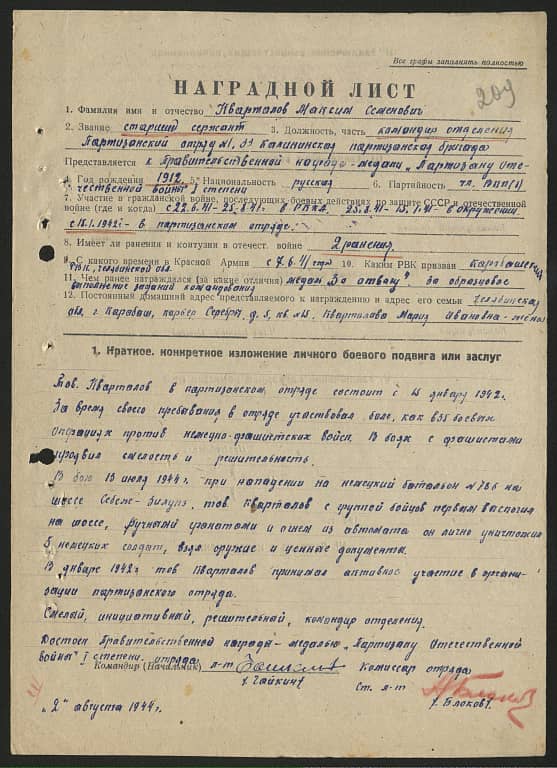 Все графы заполнять полностью
НАГРАДНОЙ ЛИСТ
209
1. Фамилия имя и отчество Кварталов Максим Семенович
2. Звание старший сержант 3. Должность, часть командир отделения
Партизанский отряд №1, 3я Калининская партизанская бригада
Представляется к Правительственной награде - медали „Партизану Оте-
4. Год рождения 1912. 5. Национальность русский 6. Партийность чл. ВКП(б)
чественной войны" I степени
7. Участие в гражданской войне, последующих боевых действиях по защите СССР и отечественной
войне (где и когда) с 22.6.41-25.8.41г. в РККА, 25.8.41- в окружении
с 15.1.1942г - в партизанском отряде.
8. Имеет ли ранения и контузии в отечест. войне 2 ранения
9. С какого времени в Красной Армии с 10. Каким РВК призван Карабашский
РВК, Челябинской обл.
11. Чем ранее награждался (за какие отличия) медаль „За отвагу" за образцовое
выполнение заданий командования
12. Постоянный домашний адрес представляемого к награждению и адрес его семьи Челябинская
обл, г. Карабаш, д. 5, кв №15, Кварталова Мария Ивановна - жена
1. Краткое, конкретное изложение личного боевого подвига или заслуг
Тов. Кварталов в партизанском отряде состоит с 15 января 1942.
За время своего пребывания в отряде участвовал более, как в 35 боевых
операциях против немецко-фашистских войск. В боях с фашистами
проявил смелость и решительность.
В бою 13 июля 1944г. при нападении на немецкий батальон №786 на
шоссе Себеж-Зилупе, тов. Кварталов с группой бойцов первым выскочил
на шоссе, ручными гранатами и огнем из автомата он лично уничтожил
5 немецких солдат, взял оружие и ценные документы.
В январе 1942г тов Кварталов принимал активное участие в органи-
зации партизанского отряда.
Смелый, инициативный, решительный, командир отделения.
Достоин Правительственной награды - медалью „Партизану Отечественной
войны" I степени.
Командир (Начальник) отряда л-т Комиссар отряда
/Чайкин/ Ст. л-т
/Блохов/.
„2" августа 1944г.